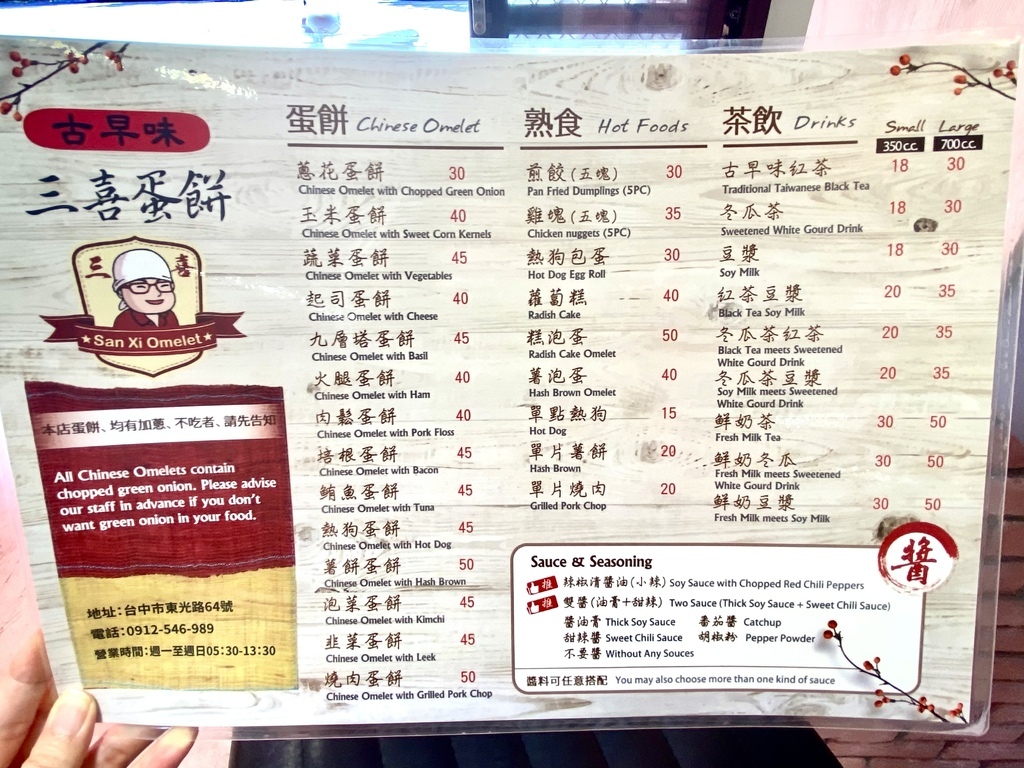 古早味
三喜蛋餅
三 喜
San Xi Omelet
本店蛋餅、均有加蔥、不吃者、請先告知
All Chinese Omelets contain
chopped green onion. Please advise
our staff in advance if you don't
want green onion in your food.
地址:台中市東光路64號
電話:0912-546-989
營業時間:週一至週日05:30-13:30
蛋餅 Chinese Omelet
蔥花蛋餅 30
Chinese Omelet with Chopped Green Onion
玉米蛋餅 40
Chinese Omelet with Sweet Corn Kernels
蔬菜蛋餅 45
Chinese Omelet with Vegetables
起司蛋餅 40
Chinese Omelet with Cheese
九層塔蛋餅 45
Chinese Omelet with Basil
火腿蛋餅 40
Chinese Omelet with Ham
肉鬆蛋餅 40
Chinese Omelet with Pork Floss
培根蛋餅 45
Chinese Omelet with Bacon
鮪魚蛋餅 45
Chinese Omelet with Tuna
熱狗蛋餅 45
Chinese Omelet with Hot Dog
薯餅蛋餅 50
Chinese Omelet with Hash Brown
泡菜蛋餅 45
Chinese Omelet with Kimchi
韭菜蛋餅 45
Chinese Omelet with Leek
燒肉蛋餅 50
Chinese Omelet with Grilled Pork Chop
熟食 Hot Foods
煎餃(五塊) 30
Pan Fried Dumplings (5PC)
雞塊(五塊) 35
Chicken nuggets (5PC)
熱狗包蛋 30
Hot Dog Egg Roll
蘿蔔糕 40
Radish Cake
糕泡蛋 50
Radish Cake Omelet
薯泡蛋 40
Hash Brown Omelet
單點熱狗 15
Hot Dog
單片薯餅 20
Hash Brown
單片燒肉 20
Grilled Pork Chop
茶飲 Drinks
Small Large
350c.c. 700c.c.
古早味紅茶 18 30
Traditional Taiwanese Black Tea
冬瓜茶 18 30
Sweetened White Gourd Drink
豆漿 18 30
Soy Milk
紅茶豆漿 20 35
Black Tea Soy Milk
冬瓜茶紅茶 20 35
Black Tea meets Sweetened
White Gourd Drink
冬瓜茶豆漿 20 35
Soy Milk meets Sweetened
White Gourd Drink
鮮奶茶 30 50
Fresh Milk Tea
鮮奶冬瓜 30 50
Fresh Milk meets Sweetened
White Gourd Drink
鮮奶豆漿 30 50
Fresh Milk meets Soy Milk
醬
Sauce & Seasoning
推 辣椒清醬油(小辣) Soy Sauce with Chopped Red Chili Peppers
推 雙醬(油膏+甜辣) Two Sauce (Thick Soy Sauce + Sweet Chili Sauce)
醬油膏 Thick Soy Sauce 番茄醬 Catchup
甜辣醬 Sweet Chili Sauce 胡椒粉 Pepper Powder
不要醬 Without Any Souces
醬料可任意搭配 You may also choose more than one kind of sauce